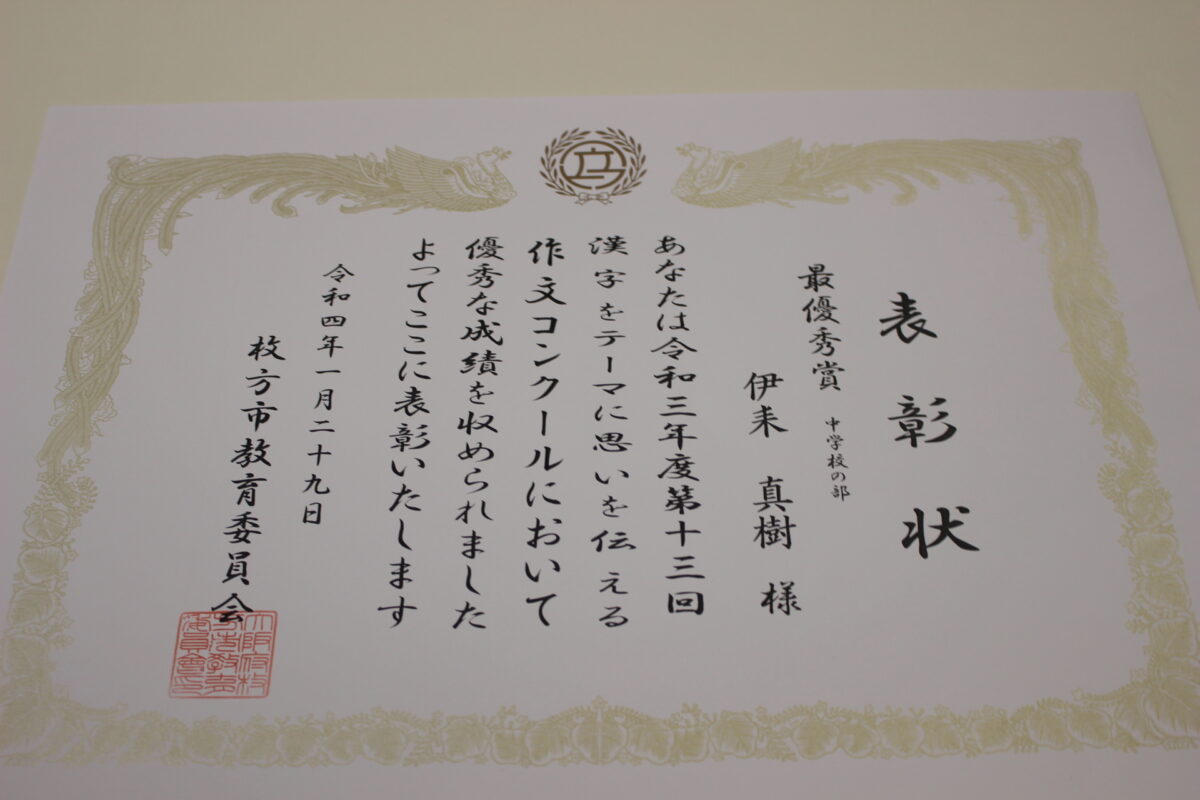 表彰状
最優秀賞 中学校の部
伊耒 真樹 様
あなたは令和三年度第十三回
漢字をテーマに思いを伝える
作文コンクールにおいて
優秀な成績を収められました
よってここに表彰いたします
令和四年一月二十九日
枚方市教育委員会
大阪府枚
方市教育
委員会印